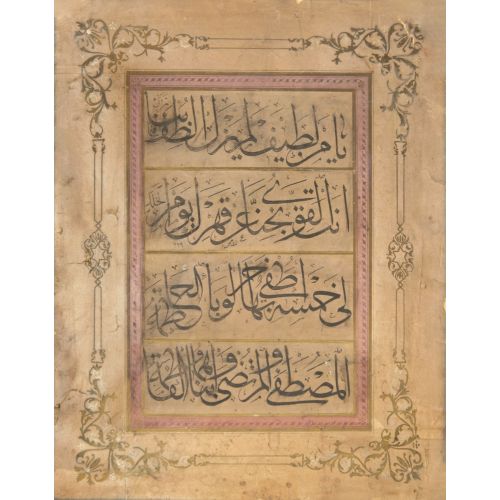 يا من لطيف لم يزل الطف بنا
انك القوي نجنا عن قهرك يوم الخلل
لي خمسة اطفي بها حر الوبا الحاطمة
المصطفى والمرتضى وابناهما والفاطمة